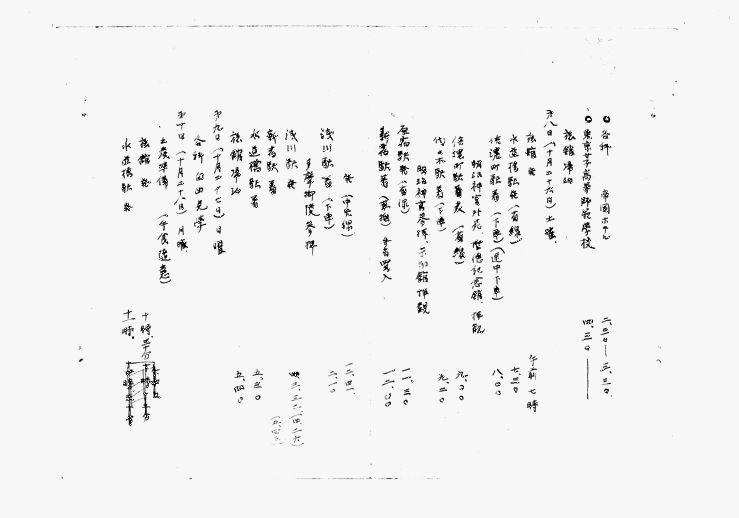 各科 帝国ホテル 二、三〇―三、三〇
東京女子高等師範學校 四、三〇―
旅館帰泊
第八日(十月二十六日)土曜
旅館発 午前七時
水道橋駅発(省線) 七、三〇
信濃町駅着(下車)(途中下車) 八、〇〇
明治神宮外苑、聖徳記念館、拝観
信濃町駅発(省線) 九、〇〇
代々木駅着(下車) 九、二〇
明治神宮参拝、宝物館拝観
原宿駅発(省線) 一一、三〇
新宿駅着 一二、〇〇
発(中央線) 一二、四一
浅川駅着(下車) 二、一〇
多摩御陵参拝
浅川駅発
新宿駅着
水道橋駅着 五、三〇
旅館帰泊 五、四〇
第九日(十月二十七日)日曜
各科自由見学
第十日(十月二十八日)月曜
出発準備(午食随意)
旅館発 十時、三十分
水道橋駅発 十一時、